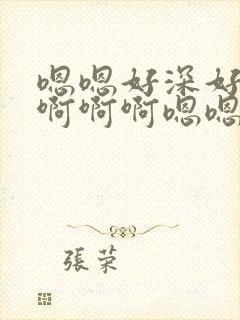 嗯嗯好深好
啊啊啊嗯嗯
張荣